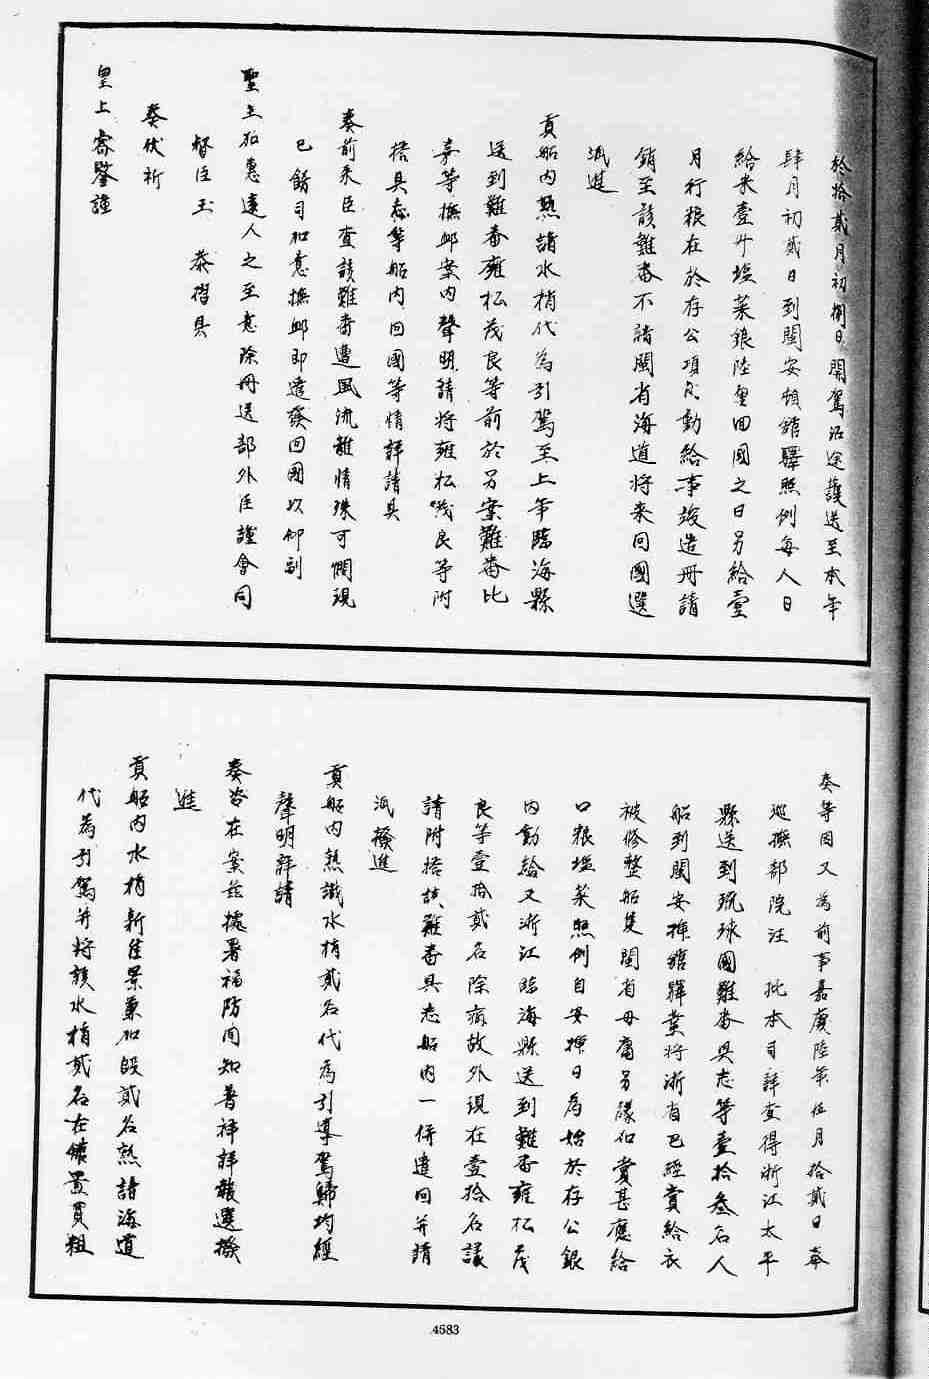 於拾貳月初捌日開駕沿途護送至本年
肆月初貳日到閩安頓館驛照例每人日
給米壹升塩菜銀陸厘回國之日另給壹
月行粮在於存公項內動給事竣造冊請
銷至該難番不諳閩省海道將来回國選
派進
貢船內熟諳水梢代為引駕至上年臨海縣
送到難番雍松茂良等前於另案難番比
嘉等撫卹案內聲明請將雍松茂良等附
搭具志等船內回國等情詳請具
奏前来臣查該難番遭風流離情殊可憫現
已飭司加意撫卹即遣發回國以仰副
聖主加惠遠人之至意除冊送部外臣謹會同
督臣玉 恭摺具
奏伏祈
皇上睿鑒謹
奏等因又為前事嘉慶陸年伍月拾貳日奉
巡撫部院汪 批本司詳查得浙江太平
縣送到琉球國難番具志等壹拾叁名人
船到閩安揷館驛業將浙省已經賞給衣
被修整船隻閩省毋庸另議加賞甚應給
口粮塩菜照例自安揷日為始於存公銀
內動給又浙江臨海縣送到難番雍松茂
良等壹拾貳名除病故外現在壹拾名議
請附搭該難番具志船內一併遣回并請
派撥進
貢船內熟識水梢貳名代為引導駕歸均經
聲明詳請
奏咨在案茲據署福防同知普禕詳報選撥
進
貢船內水梢新佳景兼加段貳名熟諳海道
代為引駕并將該水梢貳名在館置買粗
4583